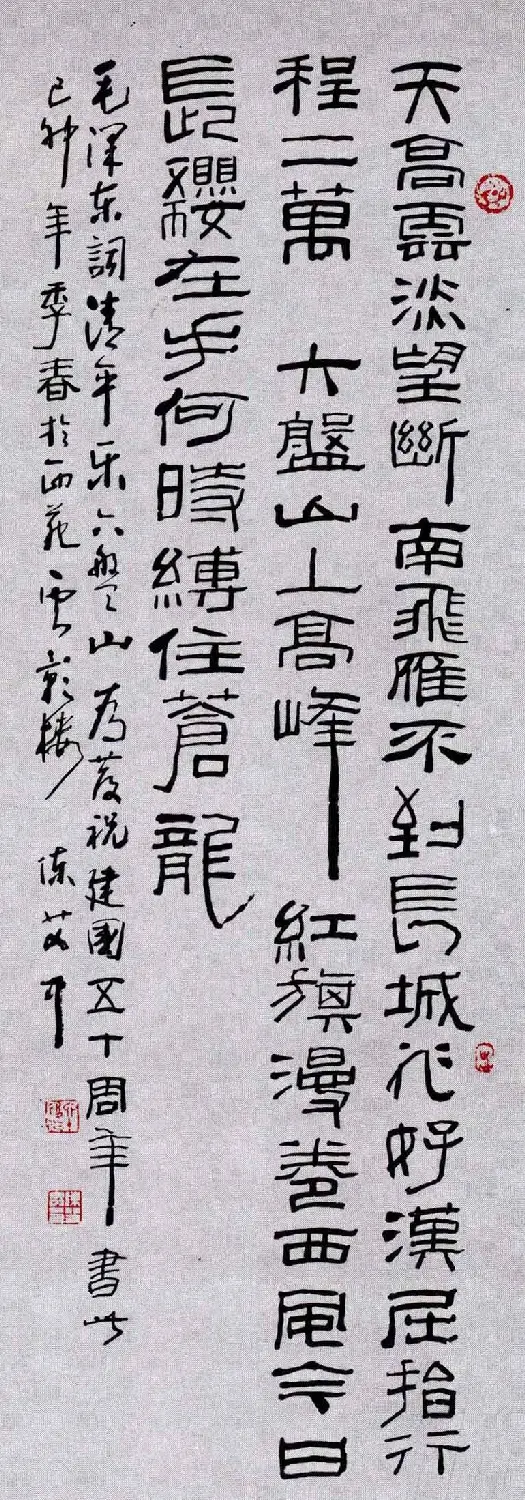 天高雲淡望斷南飛雁不到長城非好漢屈指行
程二萬 六盤山上高峰 紅旗漫卷西風今日
長纓在手何時縛住蒼龍
毛泽东詞清平乐六盘山 为慶祝建國五十周年 書此
己卯年季春於西苑雲影楼 陈艾中